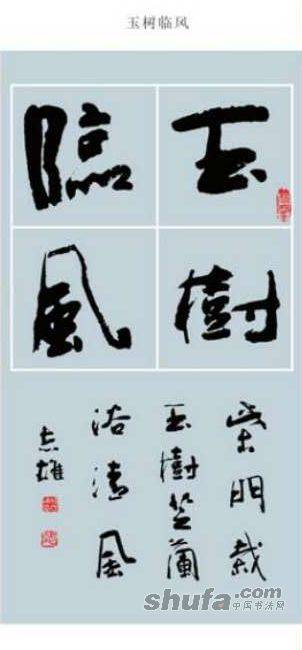 玉树临风
玉樹
臨風
柴門栽
玉樹芝蘭
浴清風
志雄
shufa.com
中国书法网